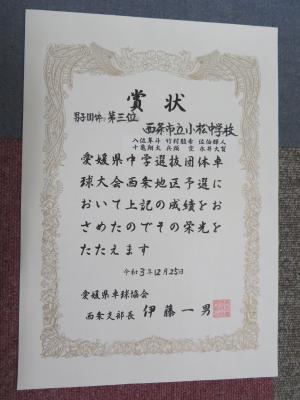 賞状
男子団体 第三位
西条市立小松中学校
愛媛県中学選抜団体卓
球大会西条地区予選に
おいて上記の成績をお
さめたのでその栄光を
たたえます
令和3年12月25日
愛媛県卓球協会
西条支部長 伊藤一男